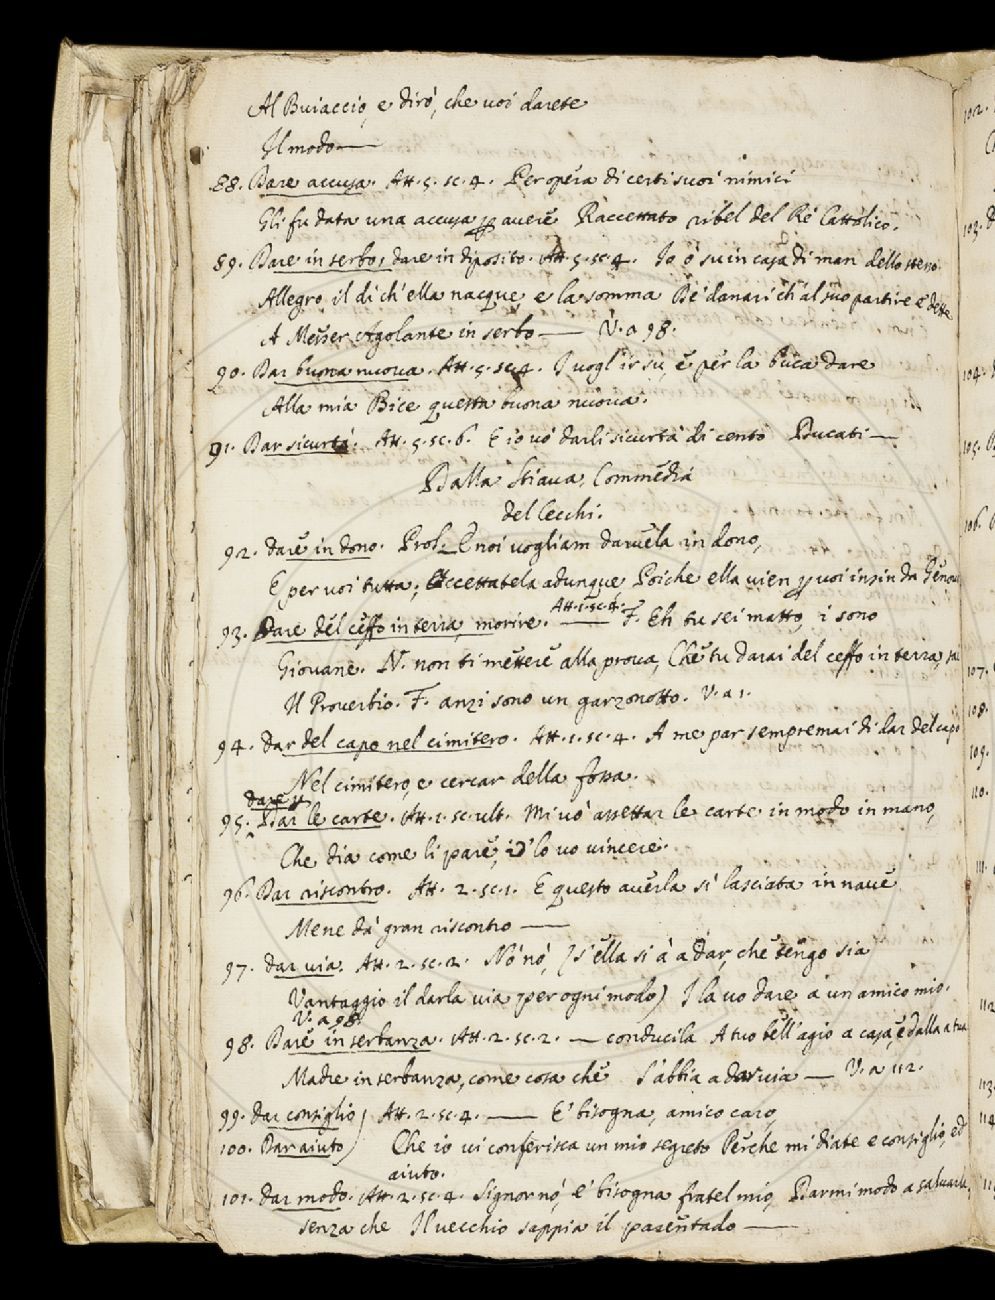 Al Buiaccio, e dirò, che voi darete
Il modo—
88. Dare accusa. Att. 5. sc. 4. Per opera di certi suoi nimici
Gli fu data una accusa avere Raccettato ribel del Re Cattolico.
89. Dare in serbo, dare in diposito. Att. 5. sc. 4. Io ò su in casa di man dello stesso
Allegro il di ch'ella nacque, e la somma De' danari ch'al suo partire e' dette
A Messer Agolante in serbo — V. a 98.
90. Dar buona nuova. Att. 5. sc. 4. I vogl'ir su, e per la buca dare
Alla mia Bice questa buona nuova.
91. Dar sicurtà. Att. 5. sc. 6. E io vo' darli sicurtà di cento Ducati—
Dalla Stiava, Commedia
del Cecchi.
92. dare in dono. Prol. E noi vogliam darvela in dono,
E per voi tutta; Accettatela adunque Poiche ella vien voi insin da Genova
93. Dare del ceffo in terra, morire. Att. 1. sc. 4. — F. Eh tu sei matto, i sono
Giovane. N. non ti mettere alla prova, Che tu darai del ceffo in terra,
Il Proverbio. F. anzi sono un garzonotto. V. a 1.
94. dar del capo nel cimitero. Att. 1. sc. 4. A me par sempremai di dar del capo
Nel cimitero, e cercar della fossa.
dare,
95. Dar le carte. Att. 1. sc. ult. Mi vo' assettar le carte in modo in mano,
Che dia come li pare, io lo vo vincere.
96. Dar riscontro. Att. 2. sc. 1. E questo averla sì lasciata in nave
Mene dà gran riscontro —
97. dar via. Att. 2. sc. 2. Nò nò, (s'ella si à a dar, che tengo sia
Vantaggio il darla via per ogni modo) I la vo dare a un amico mio.
V. a 98.
98. Dare in serbanza. Att. 2. sc. 2. — conducila A tuo bell'agio a casa, e dalla a tua
Madre in serbanza, come cosa che S'abbia a dar via — V. a 112.
99. dar consiglio) Att. 2. sc. 4. — E' bisogna, amico caro,
100. Dar aiuto) Che io vi conferisca un mio segreto Perche mi diate e consiglio, ed
aiuto.
101. dar modo. Att. 2. sc. 4. Signor nò, e' bisogna fratel mio, Darmi modo a salvarla,
senza che Il vecchio sappia il parentado —